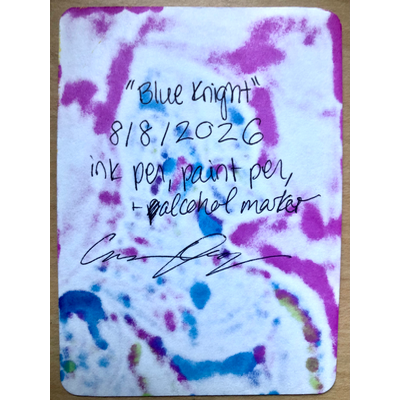 "Blue Knight"
8/8/2026
ink pen, paint pen,
+ alcohol marker